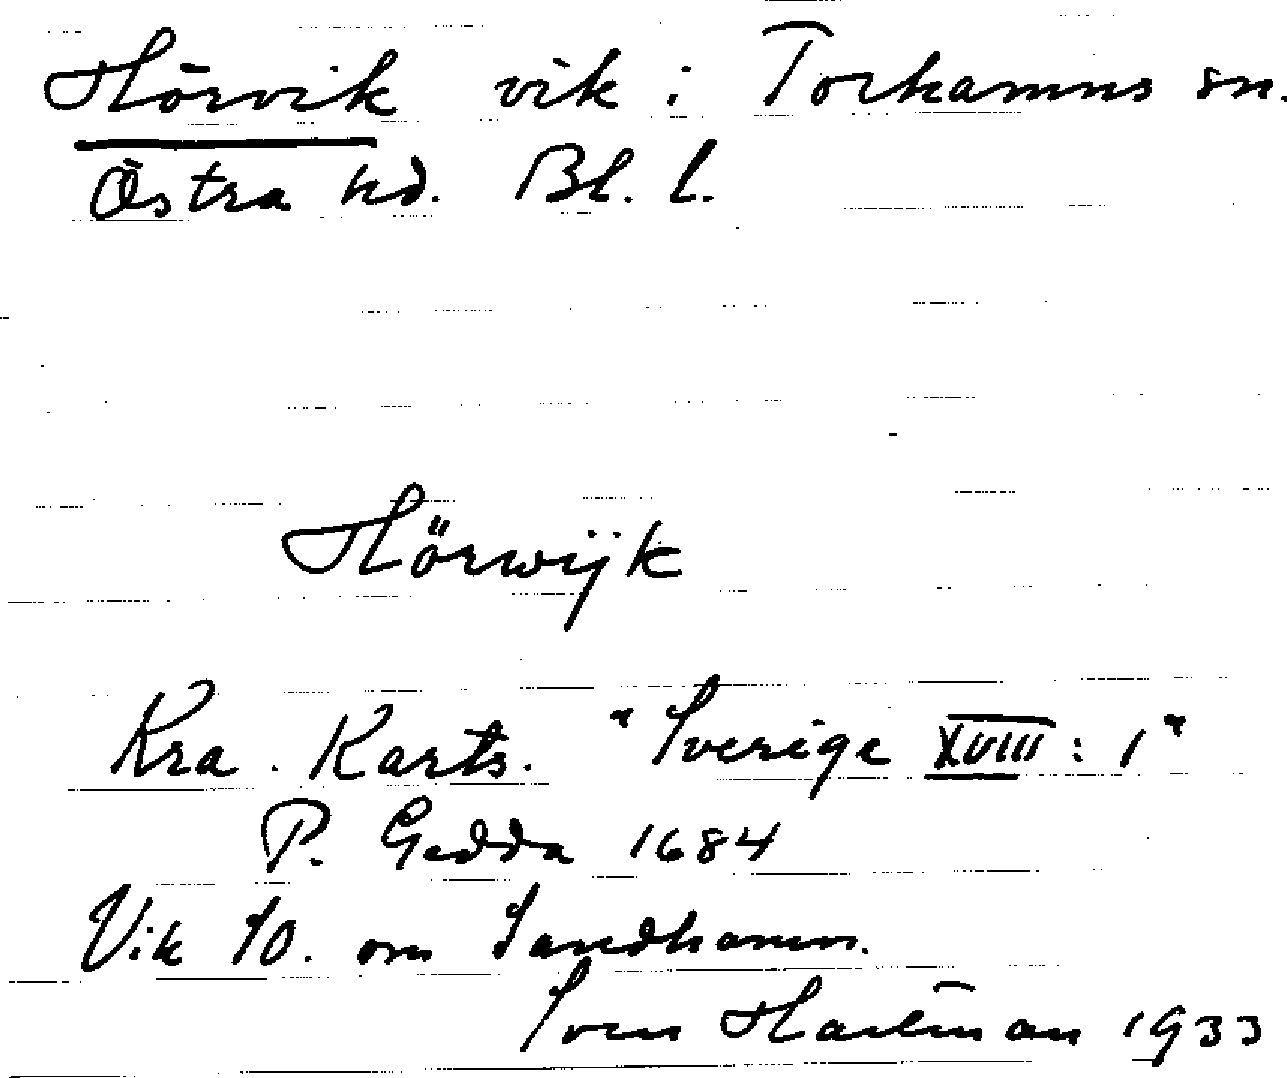 Hörvik vik i Torhamns sn.
Östra hd. Bl. l.
Hörwijk
Kra. Karts. "Sverige XVIII: 1"
P. Gedda 1684
Vik SO. om Sandhamn.
Sven Hartman 1933